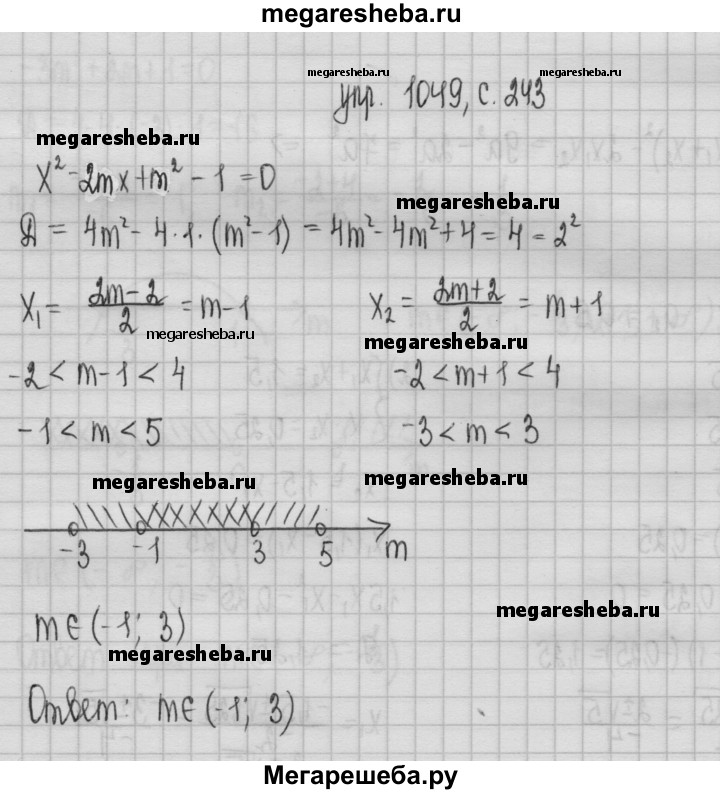 megaresheba.ru
megaresheba.ru megaresheba.ru
упр. 1049, с. 243
megaresheba.ru
x² - 2mx + m² - 1 = 0
megaresheba.ru
Д = 4m² - 4·1·(m² - 1) = 4m² - 4m² + 4 = 4 = 2²
x₁ = \frac{2m - 2}{2} = m - 1 x₂ = \frac{2m + 2}{2} = m + 1
megaresheba.ru megaresheba.ru
-2 < m - 1 < 4 -2 < m + 1 < 4
-1 < m < 5 -3 < m < 3
megaresheba.ru megaresheba.ru
-3 -1 3 5 m
megaresheba.ru
m ∈ (-1; 3)
megaresheba.ru
Ответ: m ∈ (-1; 3)
Мегарешеба.ру